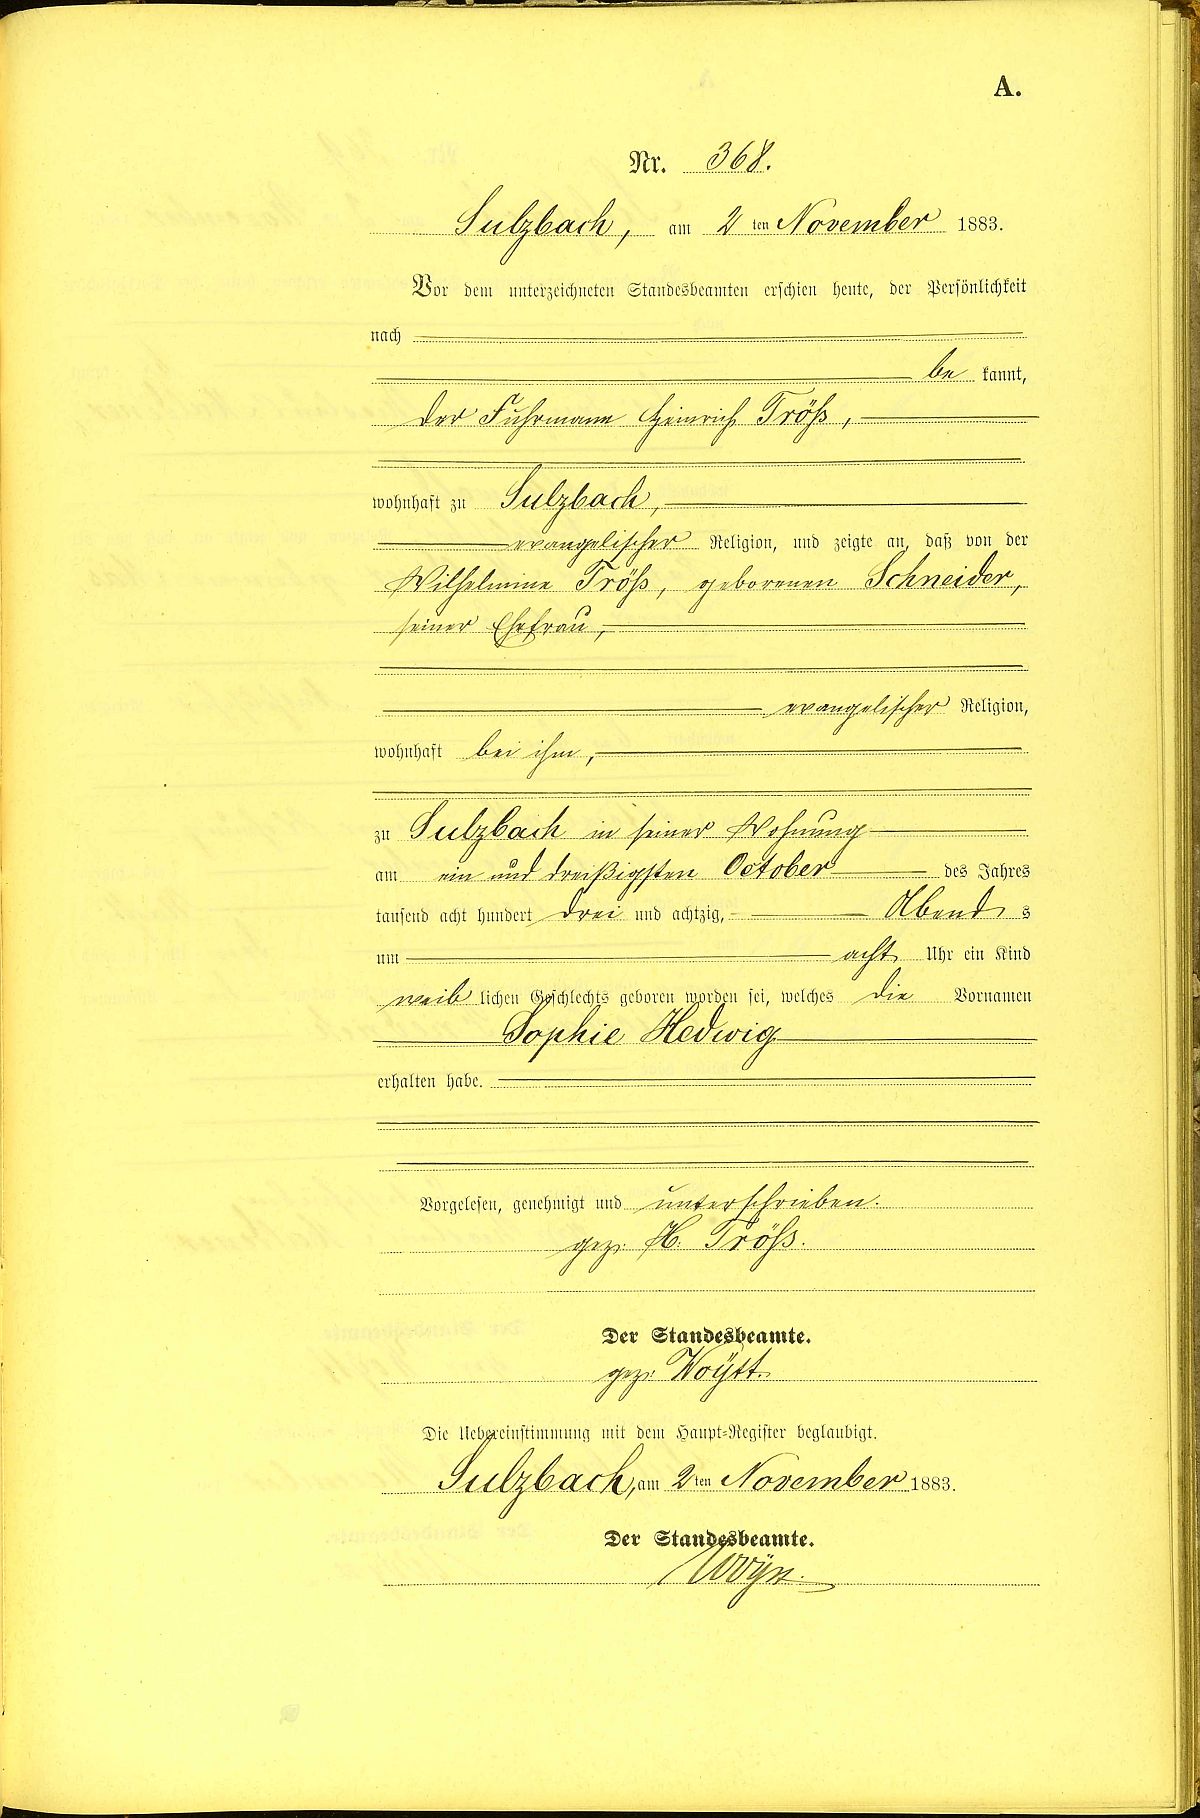 A.
Nr. 368.
Sulzbach, am 2 ten November 1883.
Vor dem unterzeichneten Standesbeamten erschien heute, der Persönlichkeit
nach
be kannt,
der Fuhrmann Heinrich Tröß,
wohnhaft zu Sulzbach,
evangelischer Religion, und zeigte an, daß von der
Wilhelmine Tröß, geborenen Schneider,
seiner Ehefrau,
evangelischer Religion,
wohnhaft bei ihm,
zu Sulzbach in seiner Wohnung
am ein und dreißigsten October des Jahres
tausend acht hundert drei und achtzig, Abend s
um acht Uhr ein Kind
weib lichen Geschlechts geboren worden sei, welches die Vornamen
Sophie Hedwig
erhalten habe.
Vorgelesen, genehmigt und unterschrieben.
gez: H. Tröß.
Der Standesbeamte.
gez: Woÿtt.
Die Uebereinstimmung mit dem Haupt-Register beglaubigt.
Sulzbach, am 2 ten November 1883.
Der Standesbeamte.